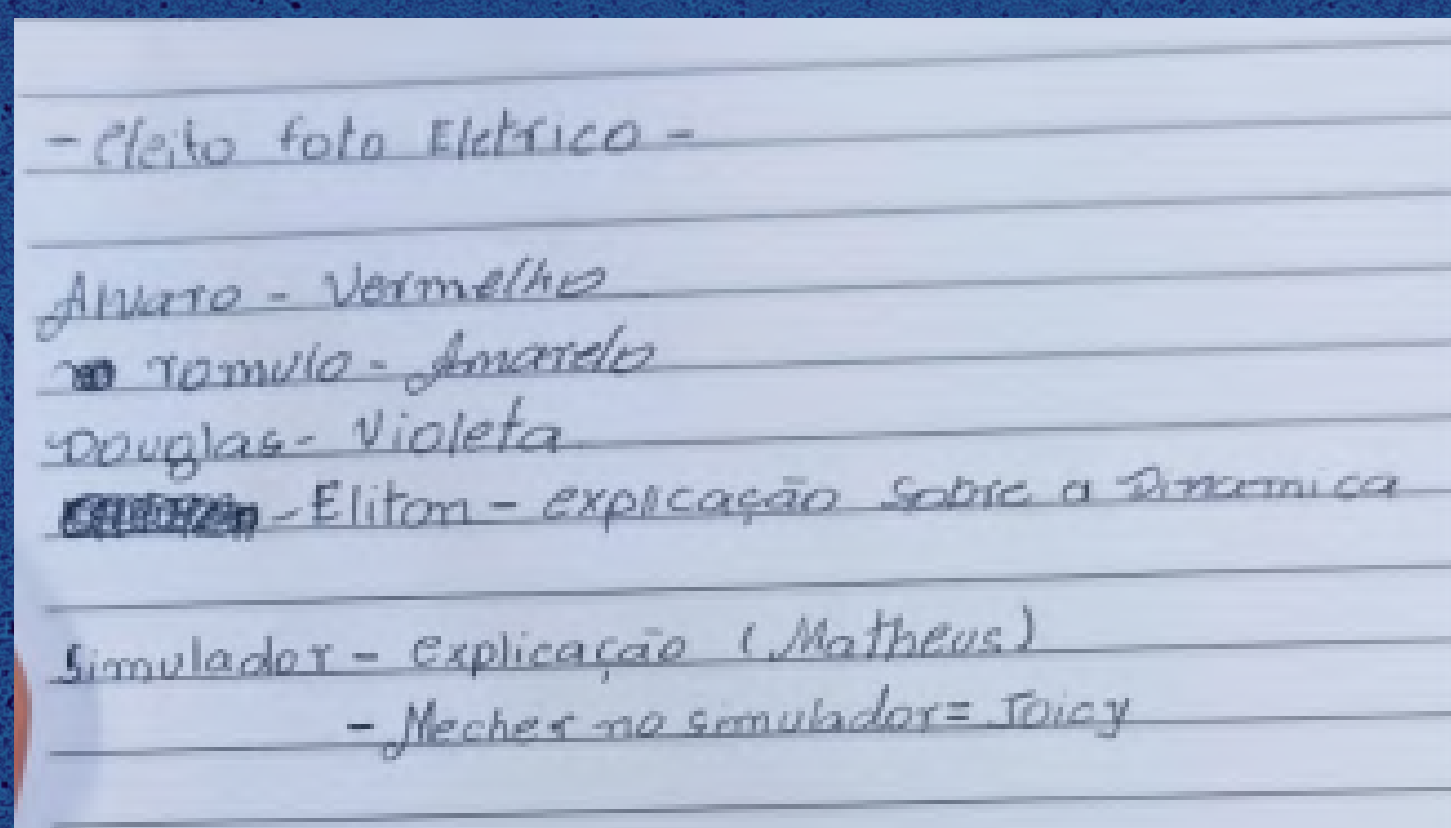 - efeito foto Eletrico -
Alvaro - Vermelho
romulo - Amarelo
Douglas - Violeta
- Eliton - explicação sobre a Dinamica
Simulador - Explicação (Matheus)
- Mecher no simulador = Joicy